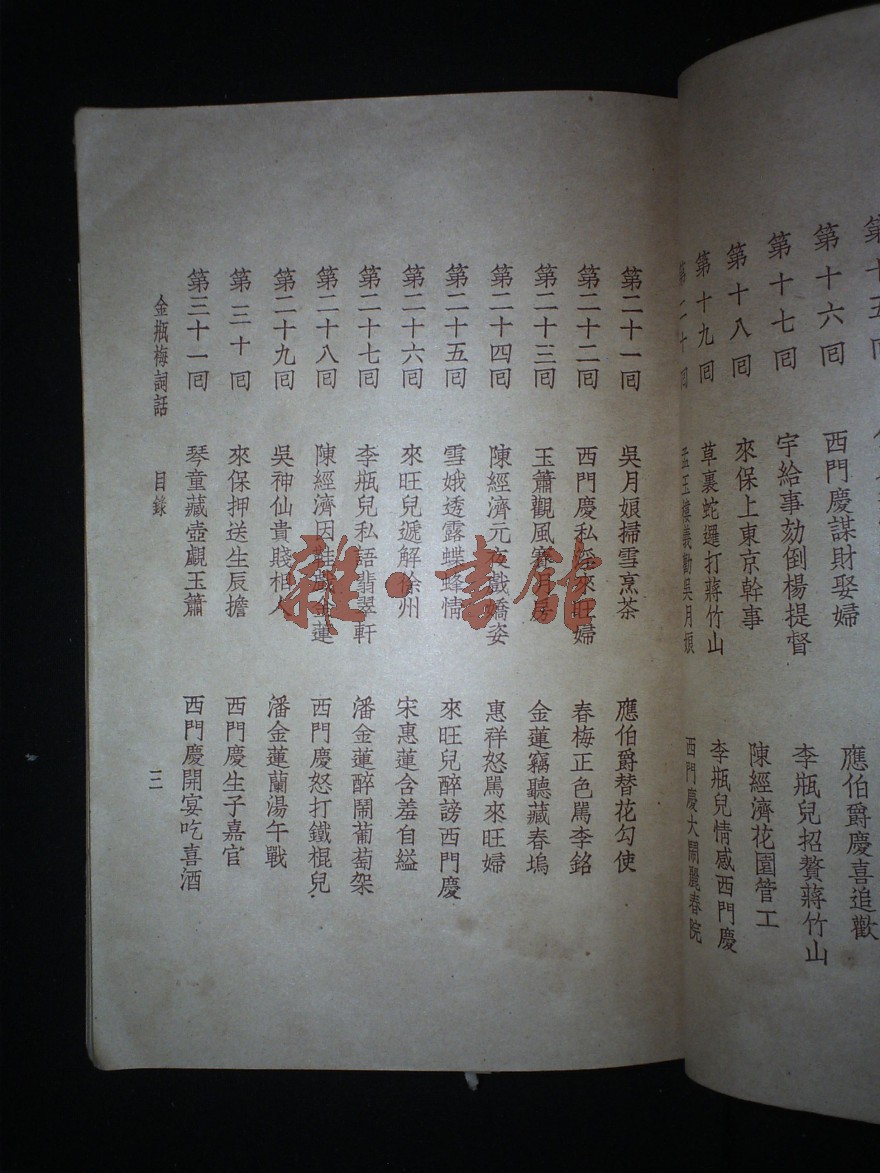 第十六回 西門慶謀財娶婦 應伯爵慶喜追歡
第十七回 宇給事劾倒楊提督 李瓶兒招贅蔣竹山
第十八回 來保上東京幹事 陳經濟花園管工
第十九回 草裏蛇邏打蔣竹山 李瓶兒情感西門慶
第二十回 孟玉樓義勸吳月娘 西門慶大鬧麗春院
第二十一回 吳月娘掃雪烹茶 應伯爵替花勾使
第二十二回 西門慶私淫來旺婦 春梅正色罵李銘
第二十三回 玉簫觀風賽月房 金蓮竊聽藏春塢
第二十四回 陳經濟元夜戲嬌姿 惠祥怒罵來旺婦
第二十五回 雪娥透露蝶蜂情 來旺兒醉謗西門慶
第二十六回 來旺兒遞解徐州 宋惠蓮含羞自縊
第二十七回 李瓶兒私語翡翠軒 潘金蓮醉鬧葡萄架
第二十八回 陳經濟因鞋戲金蓮 西門慶怒打鐵棍兒
第二十九回 吳神仙貴賤相人 潘金蓮蘭湯午戰
第三十回 來保押送生辰擔 西門慶生子嘉官
第三十一回 琴童藏壺覷玉簫 西門慶開宴吃喜酒
金瓶梅詞話 目錄 三
雜·書館